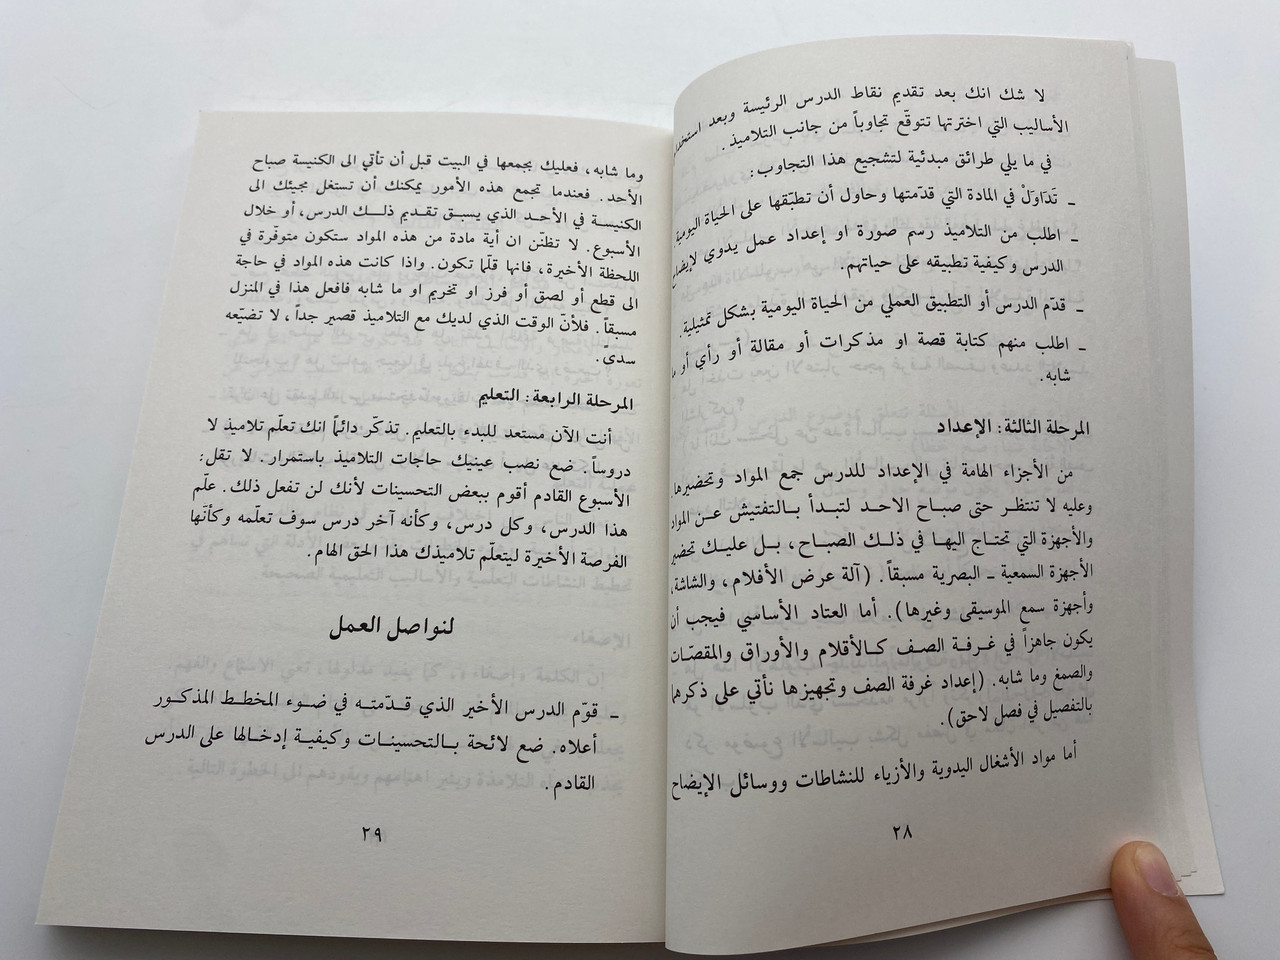 لا شك انك بعد تقديم نقاط الدرس الرئيسة وبعد
الأساليب التي اخترتها تتوقّع تجاوباً من جانب التلاميذ.
في ما يلي طرائق مبدئية لتشجيع هذا التجاوب:
ـ تَدَاوَلْ في المادة التي قدّمتها وحاول أن تطبّقها على الحياة اليومية.
ـ اطلب من التلاميذ رسم صورة او إعداد عمل يدوي لإيضاح
الدرس وكيفية تطبيقه على حياتهم.
ـ قدّم الدرس أو التطبيق العملي من الحياة اليومية بشكل تمثيلية.
ـ اطلب منهم كتابة قصة او مذكرات أو مقالة أو رأي أو ما
شابه.
المرحلة الثالثة: الإعداد
من الأجزاء الهامة في الإعداد للدرس جمع المواد وتحضيرها.
وعليه لا تنتظر حتى صباح الاحد لتبدأ بالتفتيش عن المواد
والأجهزة التي تحتاج اليها في ذلك الصباح، بل عليك تحضير
الأجهزة السمعية ـ البصرية مسبقاً. (آلة عرض الأفلام، والشاشة،
وأجهزة سمع الموسيقى وغيرها). أما العتاد الأساسي فيجب أن
يكون جاهزاً في غرفة الصف كالأقلام والأوراق والمقصّات
والصمغ وما شابه. (إعداد غرفة الصف وتجهيزها نأتي على ذكرها
بالتفصيل في فصل لاحق).
أما مواد الأشغال اليدوية والأزياء للنشاطات ووسائل الإيضاح
٢٨
وما شابه، فعليك بجمعها في البيت قبل أن تأتي الى الكنيسة صباح
الأحد. فعندما تجمع هذه الأمور يمكنك أن تستغل مجيئك الى
الكنيسة في الأحد الذي يسبق تقديم ذلك الدرس، أو خلال
الأسبوع. لا تظنّن ان أية مادة من هذه المواد ستكون متوفّرة في
اللحظة الأخيرة، فانها قلّما تكون. واذا كانت هذه المواد في حاجة
الى قطع أو لصق أو فرز او تخريم او ما شابه فافعل هذا في المنزل
مسبقاً. فلأنّ الوقت الذي لديك مع التلاميذ قصير جداً، لا تضيّعه
سدى.
المرحلة الرابعة: التعليم
أنت الآن مستعد للبدء بالتعليم. تذكّر دائماً انك تعلّم تلاميذ لا
دروساً. ضع نصب عينيك حاجات التلاميذ باستمرار. لا تقل:
الأسبوع القادم أقوم ببعض التحسينات لأنك لن تفعل ذلك. علّم
هذا الدرس، وكل درس، وكأنه آخر درس سوف تعلّمه وكأنّها
الفرصة الأخيرة ليتعلّم تلاميذك هذا الحق الهام.
لنواصل العمل
ـ قوّم الدرس الأخير الذي قدّمته في ضوء المخطط المذكور
أعلاه. ضع لائحة بالتحسينات وكيفية إدخالها على الدرس
القادم.
٢٩